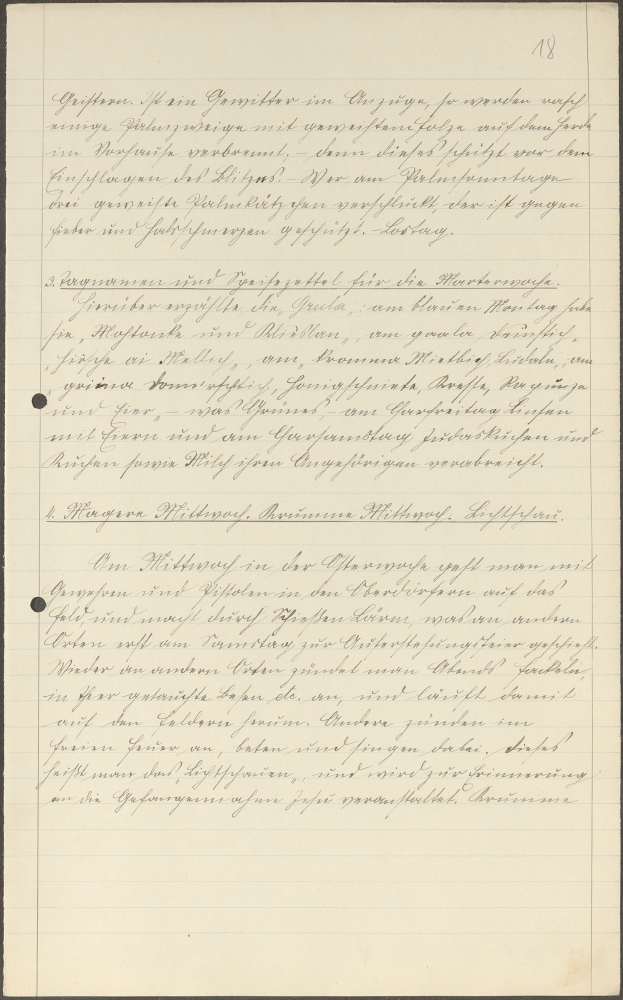 18
Geistern. Ist ein Gewitter im Anzuge, so werden rasch
einige Palmzweige mit geweihtem Holze auf dem Herde
im Vorhause verbrennt, - denn dieses schützt vor dem
Einschlagen des Blitzes. - Wer am Palmsonntage
drei geweihte Palmkätzchen verschluckt, der ist gegen
Fieber und Halsschmerzen geschützt. - Lostag.
3. Tagnamen und Speisezettel für die Marterwoche.
Hierüber erzählte die am blauen Montag habe
sie „Mohtonke und am „gaala Dinstich„
„Hirsche ai Mellich„, am „kromma Mittich am
„griina Honigschniete, Kresse, Rapunze
und Eier„ - was Grünes, - am Charfreitag Linsen
mit Eiern und am Charsamstag Judaskuchen und
Kuchen sowie Milch ihren Angehörigen verabreicht.
4. Magere Mittwoch. Krumme Mittwoch. Lichtschau.
Am Mittwoch in der Osterwoche geht man mit
Gewehren und Pistolen in den Oberdörfern auf das
Feld, und macht durch Schießen Lärm, was an andern
Orten erst am Samstag zur Auferstehungsfeier geschieht.
Wieder an andern Orten zündet man Abends Fackeln,
in Theer getauchte Besen etc. an, und läuft damit
auf den Feldern herum. Andere zünden im
Freien Feuer an, beten und singen dabei. Dieses
heißt man das „Lichtschauen„, und wird zur Erinnerung
an die Gefangennahme Jesu veranstaltet. Krumme